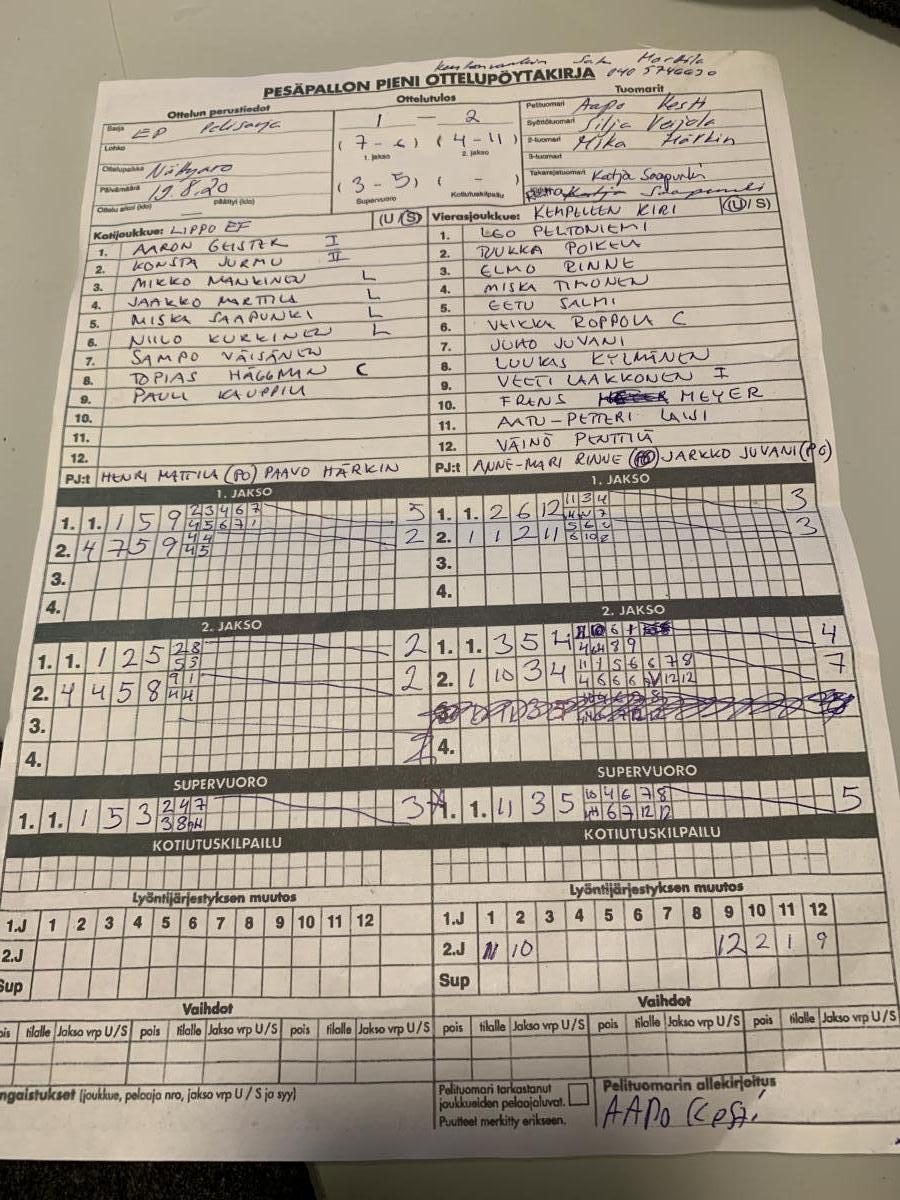 040 5746620
PESÄPALLON PIENI OTTELUPÖYTAKIRJA
Ottelun perustiedot
Ottelutulos
Tuomarit
Sarja EP
Lohko
Ottelupaikka
Päivämäärä 19.8.20
Ottelu alkoi (klo) päättyi (klo)
1 - 2
(7-6) (4-11)
1. jakso 2. jakso
(3-5) ( - )
Supervuoro Kotiutuskilpailu
Pelituomari Aapo Kesti
Syöttötuomari Silja Veijola
2-tuomari Mika Härkin
3-tuomari
Takarajatuomari Katja Saapunki
Katja Saapunki
Kotijoukkue: LIPPO EF (U/S)
1. AARON GEISTER I
2. KONSTA JURMU II
3. MIKKO MANKINEN L
4. JAAKKO MARTTILA L
5. MISKA SAAPUNKI L
6. NIILO KURKINEN L
7. SAMPO VÄISÄNEN
8. TOPIAS HÄGGMAN C
9. PAULI KAUPPILA
10.
11.
12.
PJ:t HENRI MATTILA (PO) PAAVO HÄRKIN
Vierasjoukkue: KEMPELEEN KIRI (U/S)
1. LEO PELTONIEMI
2. TUUKKA POIKELA
3. ELMO RINNE
4. MISKA TIMONEN
5. EETU SALMI
6. VEIKKA ROPPOLA C
7. JUHO JUVANI
8. LUUKAS KYLMÄNEN
9. VEETI LAAKKONEN I
10. FRANS MEYER
11. AATU-PETTERI
12. VÄINÖ PENTTILÄ
PJ:t ANNE-MARI RINNE JARKKO JUVANI (PO)
1. JAKSO
1. 1. 1 5 9 2 3 4 6 7 5
4 5 6 7 1
2. 4 7 5 9 4 4 2
4 5
3.
4.
1. JAKSO
1. 1. 2 6 12 11 3 4 3
2. 1 1 2 11 5 6 3
6 10
3.
4.
2. JAKSO
1. 1. 1 2 5 2 8 2
5 5
2. 4 4 5 8 9 1 2
3.
4.
2. JAKSO
1. 1. 3 5 4 4
2. 1 10 3 4 11 1 5 6 6 7 8 7
4 6 6 6 12 12
4.
SUPERVUORO
1. 1. 1 5 3 2 4 7 3
3 8
SUPERVUORO
1. 1. 11 3 5 10 4 6 7 8 5
6 7 12 12
KOTIUTUSKILPAILU
KOTIUTUSKILPAILU
Lyöntijärjestyksen muutos
1.J 1 2 3 4 5 6 7 8 9 10 11 12
2.J
Sup
Lyöntijärjestyksen muutos
1.J 1 2 3 4 5 6 7 8 9 10 11 12
2.J 10 12 2 1 9
Sup
Vaihdot
pois tilalle Jakso vrp U/S pois tilalle Jakso vrp U/S pois tilalle Jakso vrp U/S
Vaihdot
pois tilalle Jakso vrp U/S pois tilalle Jakso vrp U/S pois tilalle Jakso vrp U/S
ngaistukset (joukkue, pelaaja nro, jakso vrp U / S ja syy)
Pelituomari tarkastanut
joukkueiden pelaajaluvat.
Puutteet merkitty erikseen.
Pelituomarin allekirjoitus
AAPO Kesti